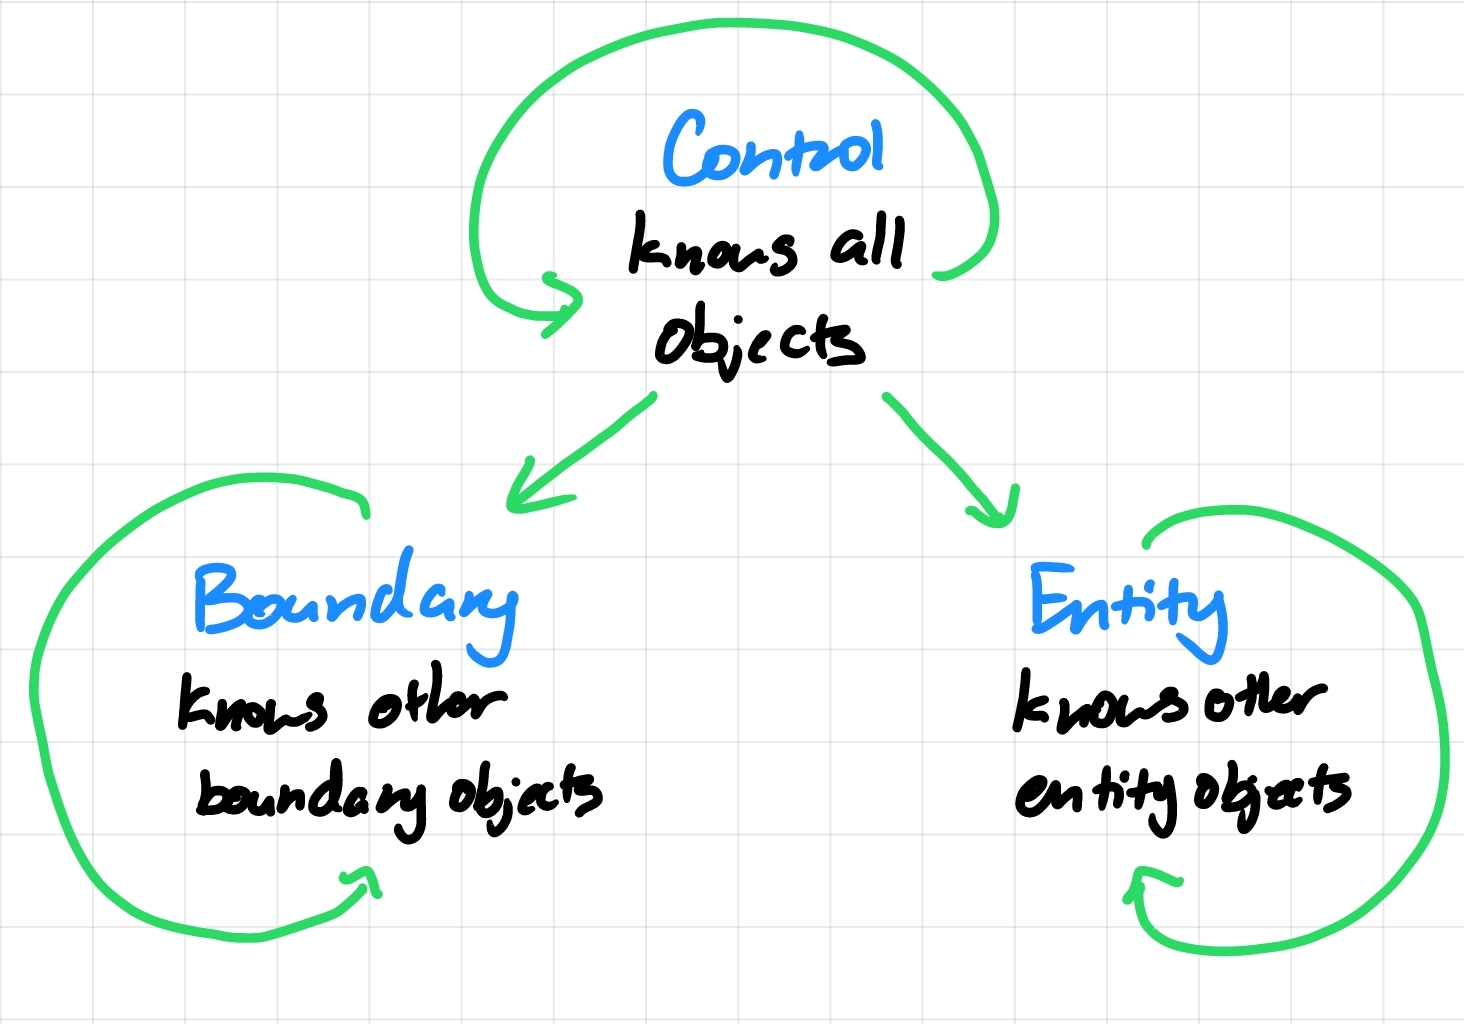 Control
knows all
objects
Boundary
knows other
boundary objects
Entity
knows other
entity objects